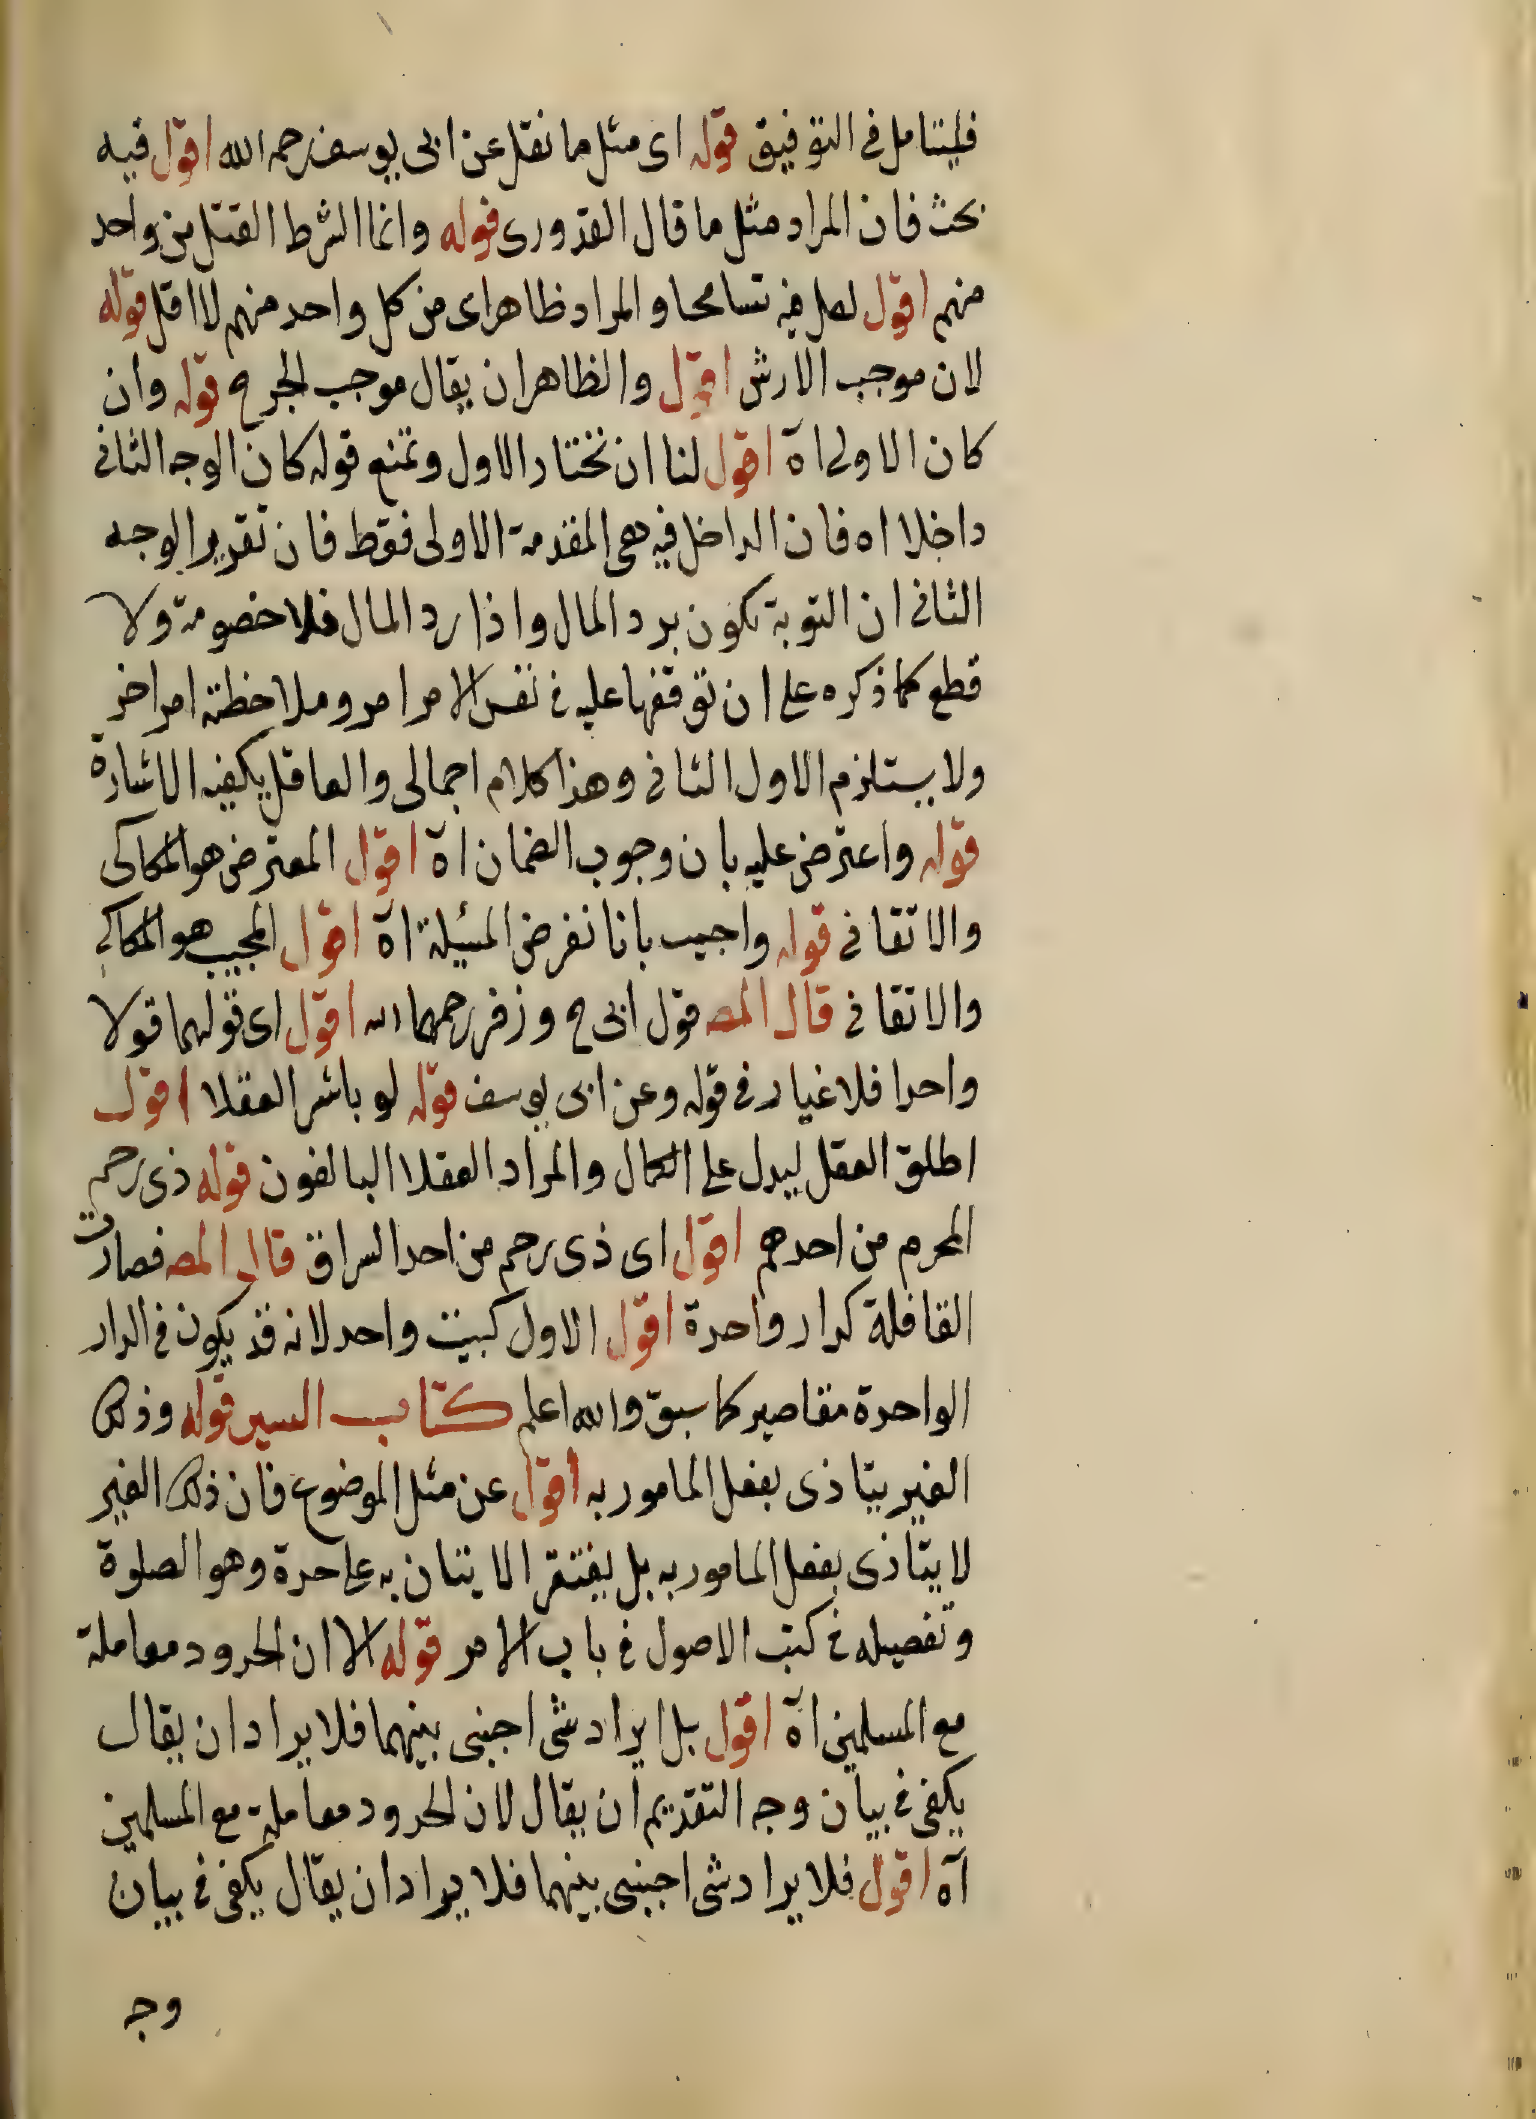 فليتامل فى التوفيق قوله اى مثل ما نقل عن ابى يوسف رحمه الله اقول فيه
بحث فان المراد مثل ما قال القدورى قوله وانما الشرط القتل من واحد
منهم اقول لعل فيه تسامحا والمراد ظاهرا اى من كل واحد منهم لا اقل قوله
لان موجب الارش اقول والظاهر ان يقال موجب الجرح قوله وان
كان الاولى اه اقول لنا ان نختار الاول ونمنع قوله كان الوجه الثانى
داخلا اه فان الداخل فيه هى المقدمة الاولى فقط فان تقرير الوجه
الثانى ان التوبة تكون برد المال واذا رد المال فلا خصومة ولا
قطع كما ذكره على ان توقفها عليه فى نفس الامر امر وملاحظته امر اخر
ولا يستلزم الاول الثانى وهذا كلام اجمالى والعاقل يكفيه الاشارة
قوله واعترض عليه بان وجوب الضمان اه اقول المعترض هو الكاكى
والاتقانى قوله واجيب بانا نفرض المسئلة اه اقول المجيب هو الكاكى
والاتقانى قال المص قول ابى ح وزفر رحمهما الله اقول اى قولهما قولا
واحدا فلا غبار فى قوله وعن ابى يوسف قوله لو باشر العقلا اقول
اطلق العقل ليدل على الكمال والمراد العقلا البالغون قوله ذى رحم
المحرم من احدهم اقول اى ذى رحم من احد السراق قال المص فصارت
القافلة كدار واحدة اقول الاول كبيت واحد لانه قد يكون فى الدار
الواحدة مقاصير كما سبق والله اعلم كتاب السير قوله وذلك
الغير يتاذى بفعل المامور به اقول عن مثل الموضوع فان ذلك الغير
لا يتاذى بفعل المامور به بل يفتقر الا يتان به على حدة وهو الصلوة
وتفصيله فى كتب الاصول فى باب الامر قوله الا ان الحدود معاملة
مع المسلمين اه اقول بل ايراد شى اجنبى بينهما فلا يراد ان يقال
يكفى فى بيان وجه التقديم ان يقال لان الحدود معاملة مع المسلمين
اه اقول فلا يراد شى اجنبى بينهما فلا يراد ان يقال يكفى فى بيان
وجه